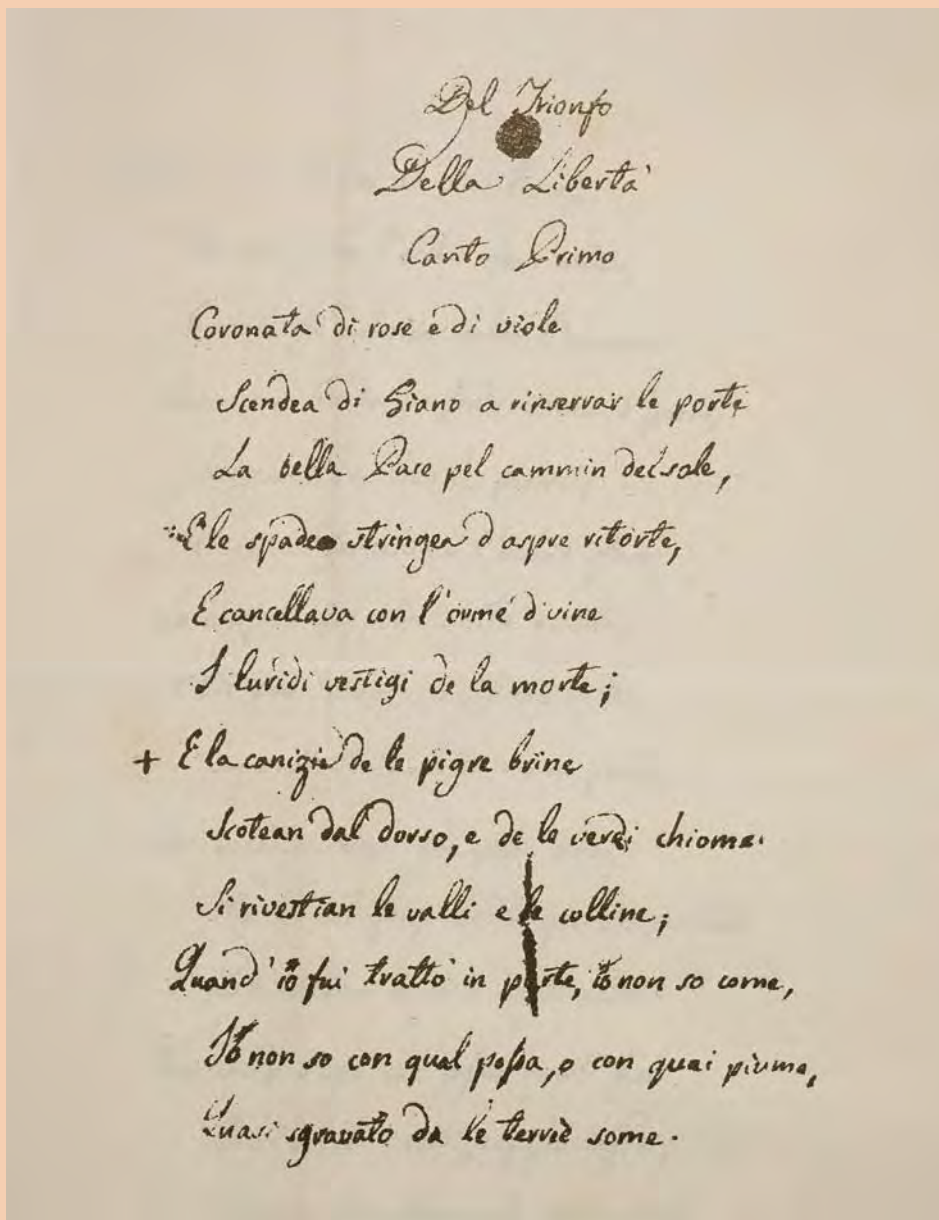 Del Trionfo
Della Libertà
Canto Primo
Coronata di rose e di viole
Scendea di Giano a rinserrar le porte
La bella Pace pel cammin del sole,
E le spade stringea d'aspre ritorte,
E cancellava con l'orme divine
I luridi vestigi de la morte;
+ E la canizie de le pigre brine
Scotean dal dorso, e de le verdi chiome
Si rivestian le valli e le colline;
Quand'io fui tratto in parte, io non so come,
Io non so con qual possa, o con quai piume,
Quasi sgravato da le terree some.